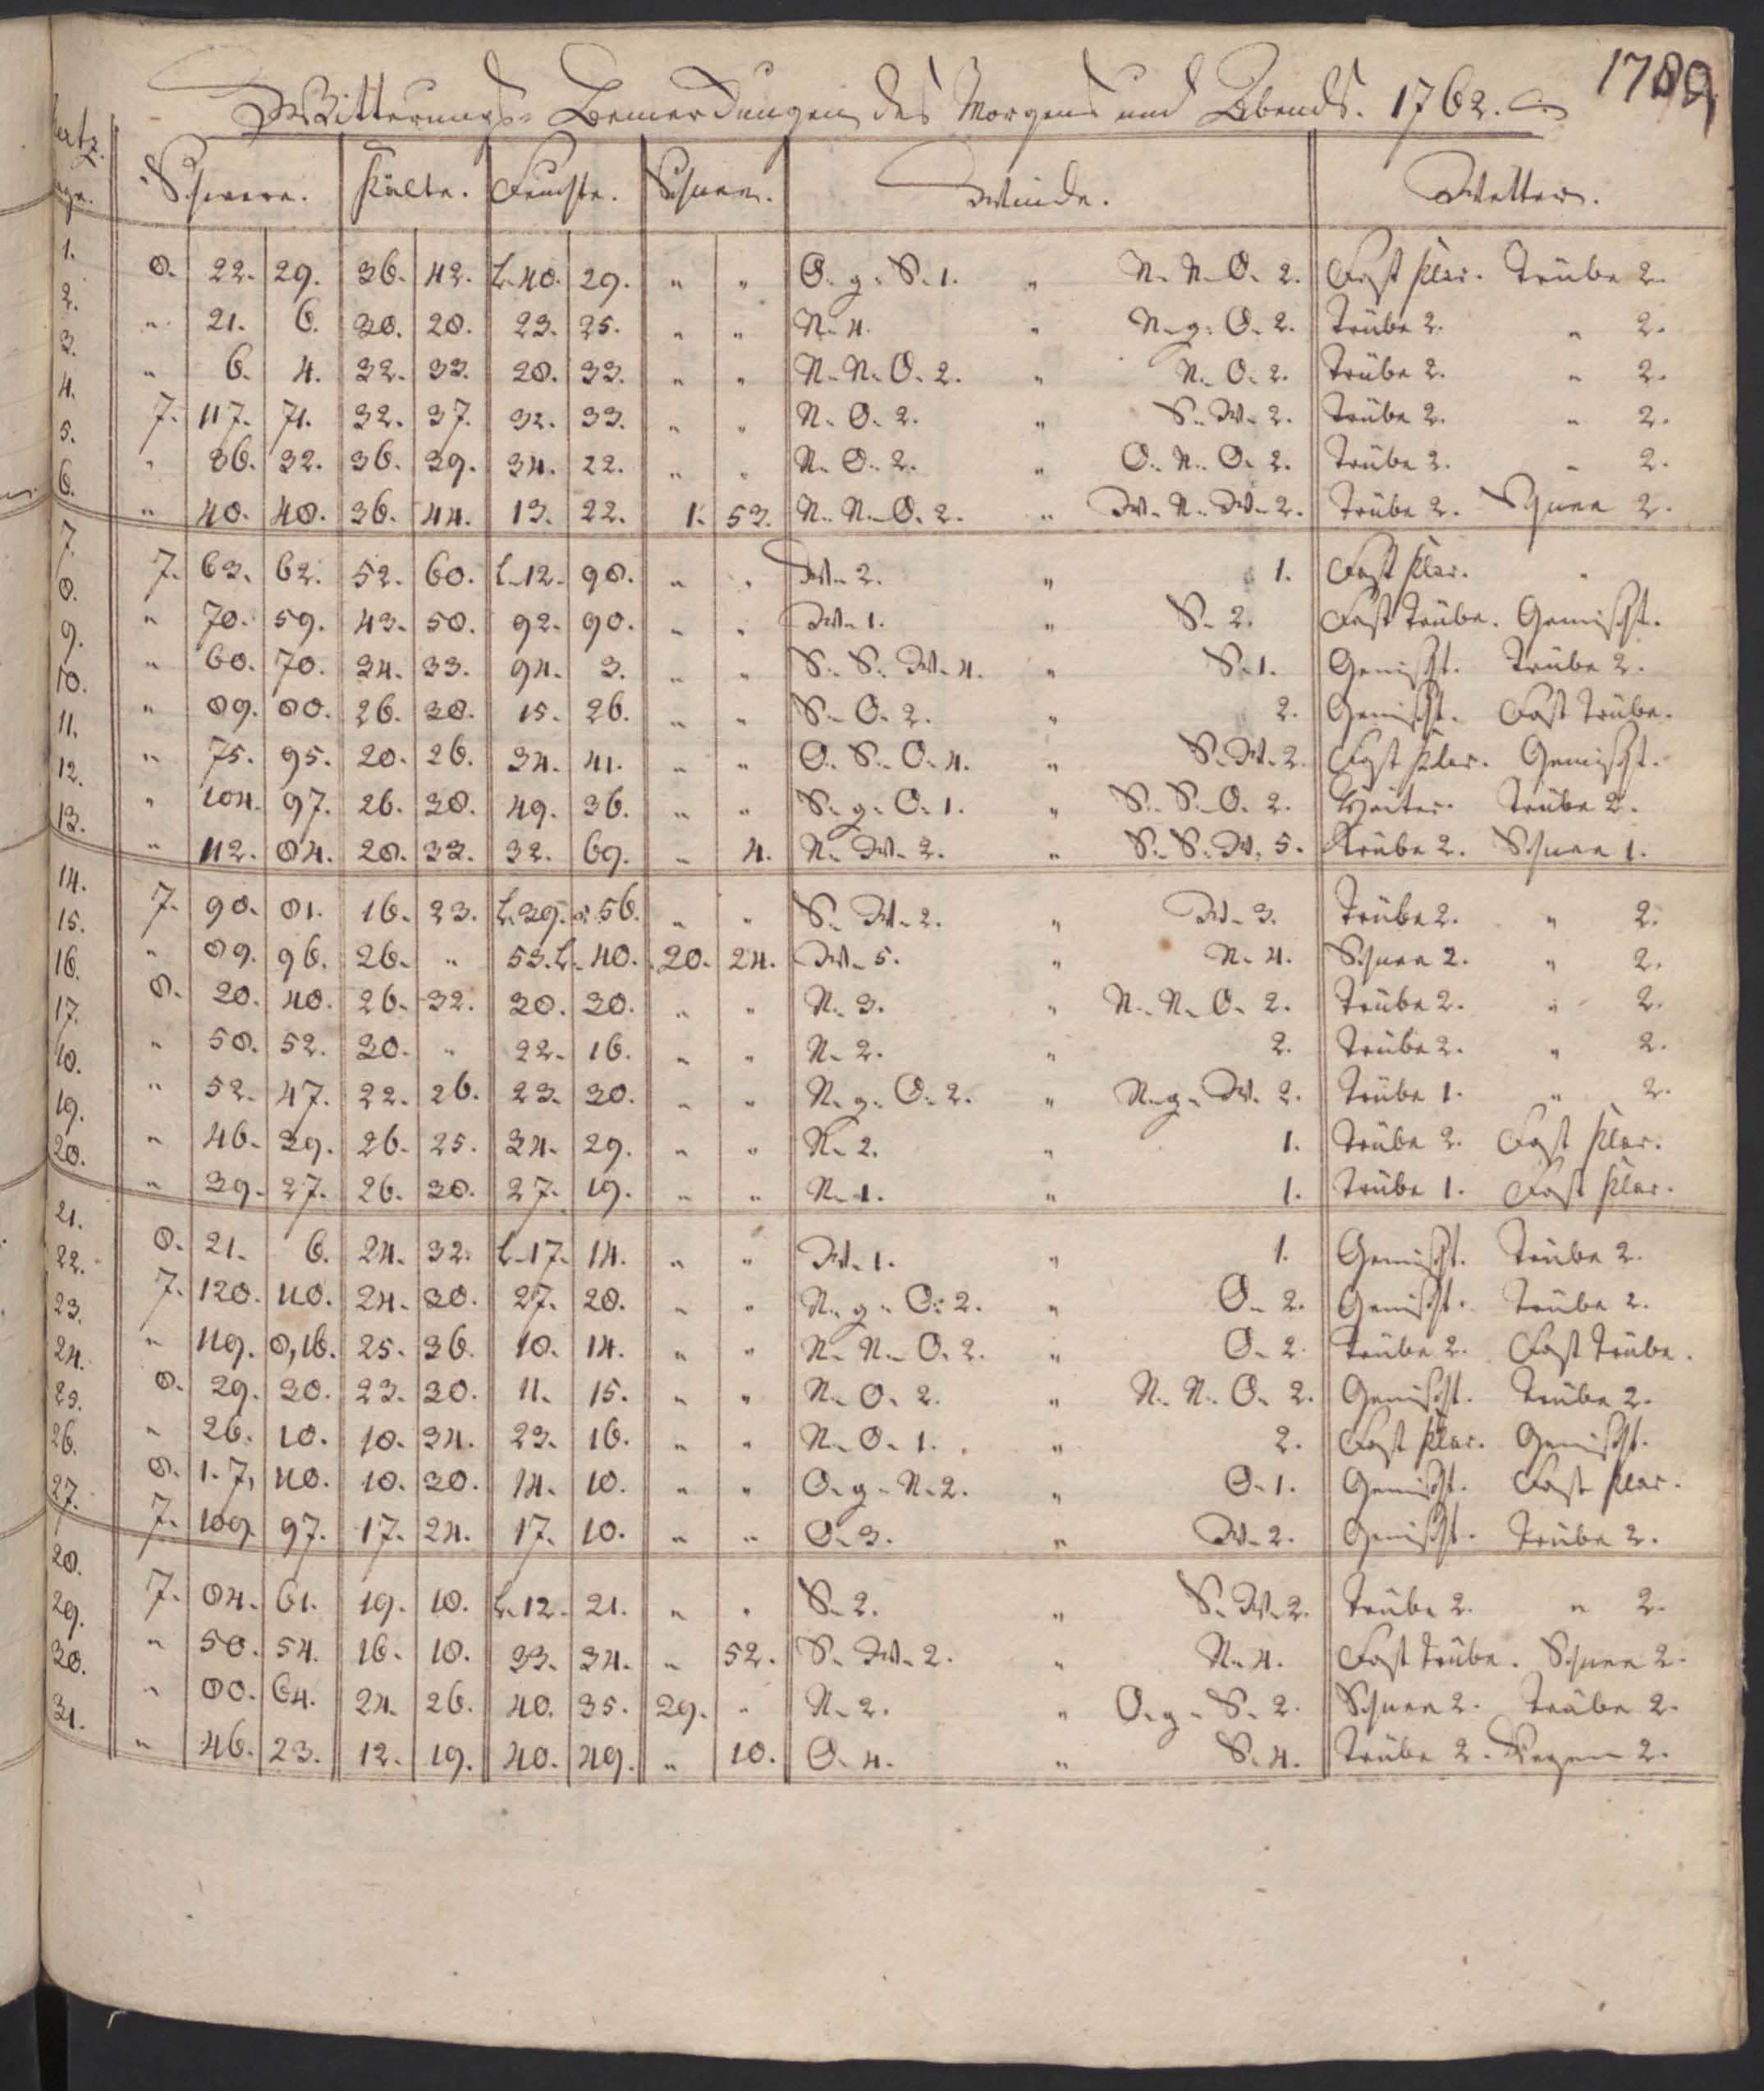 1789
Witterungs-Bemerckungen des Morgens und Abends. 1762.
Schwere. Kälte. Feuchte. Schnee. Winde. Wetter.
1. 8. 22. 29. 36. 42. L. 40. 29. " " O. g. S. 1. " N. N. O. 2. Fast klar. Trübe 2.
2. " 21. 6. 30. 28. 23. 25. " " N. 4. " N. g. O. 2. Trübe 2. " 2.
3. " 6. 4. 32. 33. 28. 33. " " N. N. O. 2. " N. O. 2. Trübe 2. " 2.
4. 7. 117. 71. 32. 37. 32. 33. " " N. O. 2. " S. W. 2. Trübe 2. " 2.
5. " 36. 32. 36. 39. 34. 22. " " N. O. 2. " O. N. O. 2. Trübe 2. " 2.
6. " 40. 48. 36. 44. 13. 22. 1. 53. N. N. O. 2. " W. N. W. 2. Trübe 2. Schnee 2.
7. 7. 63. 62. 52. 60. L. 12. 98. " " W. 2. " 1. Fast klar. "
8. " 70. 59. 43. 50. 92. 90. " " W. 1. " S. 2. Fast trübe. Gemischt.
9. " 60. 70. 34. 33. 94. 3. " " S. S. W. 4. " S. 1. Gemischt. Trübe 2.
10. " 89. 80. 26. 30. 15. 26. " " S. O. 2. " 2. Gemischt. Fast trübe.
11. " 75. 95. 20. 26. 34. 41. " " O. S. O. 4. " S. W. 2. Fast klar. Gemischt.
12. " 104. 97. 26. 30. 49. 36. " " S. g. O. 1. " S. S. O. 2. Heiter. Trübe 2.
13. " 112. 84. 28. 33. 32. 69. " 4. N. W. 2. " S. S. W. 5. Trübe 2. Schnee 1.
14. 7. 90. 81. 16. 23. L. 39. 56. " " S. W. 2. " W. 3. Trübe 2. " 2.
15. " 89. 96. 26. " 53. L. 40. 20. 24. W. 5. " N. 4. Schnee 2. " 2.
16. 8. 20. 40. 26. 32. 30. 30. " " N. 3. " N. N. O. 2. Trübe 2. " 2.
17. " 50. 52. 30. " 22. 16. " " N. 2. " 2. Trübe 2. " 2.
18. " 52. 47. 22. 26. 23. 30. " " N. g. O. 2. " N. g. W. 2. Trübe 1. " 2.
19. " 46. 39. 26. 25. 34. 29. " " N. 2. " 1. Trübe 2. Fast klar.
20. " 39. 27. 26. 30. 27. 19. " " N. 1. " 1. Trübe 1. Fast klar.
21. 8. 21. 6. 24. 32. L. 17. 14. " " W. 1. " 1. Gemischt. Trübe 2.
22. 7. 120. 118. 24. 30. 27. 20. " " N. g. O. 2. " O. 2. Gemischt. Trübe 2.
23. " 119. 8,16. 25. 36. 10. 14. " " N. N. O. 2. " O. 2. Trübe 2. Fast trübe.
24. 8. 29. 30. 23. 30. 11. 15. " " N. O. 2. " N. N. O. 2. Gemischt. Trübe 2.
25. " 26. 10. 18. 34. 23. 16. " " N. O. 1. " 2. Fast klar. Gemischt.
26. 8. 1. 7, 118. 18. 30. 14. 10. " " O. g. N. 2. " O. 1. Gemischt. Fast klar.
27. 7. 109. 97. 17. 24. 17. 10. " " O. 3. " W. 2. Gemischt. Trübe 2.
28. 7. 84. 61. 19. 18. L. 12. 21. " " S. 2. " S. W. 2. Trübe 2. " 2.
29. " 50. 54. 16. 18. 33. 34. " 52. S. W. 2. " N. 4. Fast trübe. Schnee 2.
30. " 80. 64. 24. 26. 40. 35. 29. " N. 2. " O. g. S. 2. Schnee 2. Trübe 2.
31. " 46. 23. 12. 19. 40. 49. " 10. O. 4. " S. 4. Trübe 2. Regen 2.